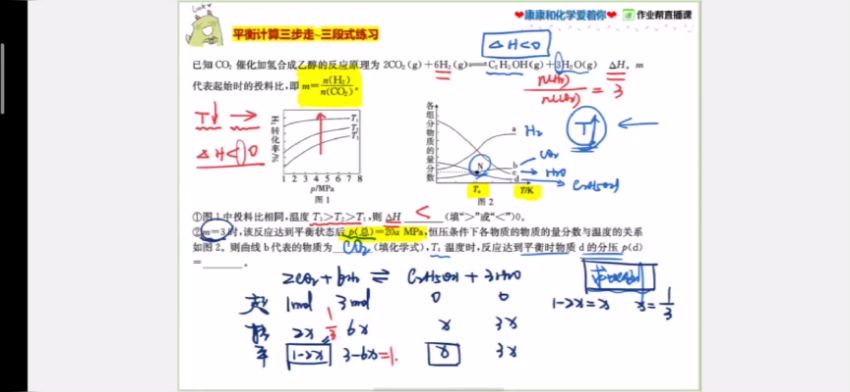 Look
❤康康和化学爱着你❤ 作业帮直播课
平衡计算三步走~三段式练习
△H<0
已知 CO₂ 催化加氢合成乙醇的反应原理为 2CO₂(g)+6H₂(g)⇌C₂H₅OH(g)+3H₂O(g) ΔH。m
代表起始时的投料比,即 m=n(H₂)/n(CO₂)。
= 3
T↓ →
△H<0
H₂转化率/%
T₁
T₂
T₃
1 2 3 4 5 6 7 8
p/MPa
图 1
各组分物质的量分数
a H₂
b CO₂
c H₂O
d C₂H₅OH
N
T₄ T/K
图 2
T↑ ←
①图 1 中投料比相同,温度 T₃>T₂>T₁,则 ΔH < (填“>”或“<”)0。
②m=3 时,该反应达到平衡状态后 p(总)=20a MPa,恒压条件下各物质的物质的量分数与温度的关系
如图 2。则曲线 b 代表的物质为 CO₂ (填化学式),T₄ 温度时,反应达到平衡时物质 d 的分压 p(d)
=______。
2CO₂ + 6H₂ ⇌ C₂H₅OH + 3H₂O
起 1mol 3mol 0 0
1-2x=x x=1/3
转 2x 6x x 3x
1/3
平 1-2x 3-6x=1. x 3x